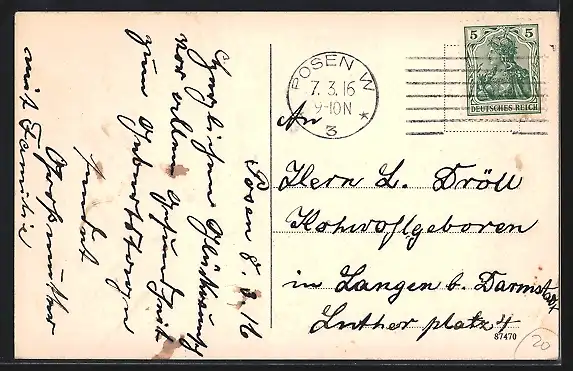 Posen 8. 3. 16
Herzlichen Glückwunsch
vor allem Gesundheit
zum Geburtstage
sendet
Großmutter
mit Familie
POSEN W
7. 3. 16
9-10 N
*
3
5 5
DEUTSCHES REICH
An
Herrn L. Dröll
Hohwohlgeboren
in Langen b. Darmstadt
Luther platz 4
87470
20